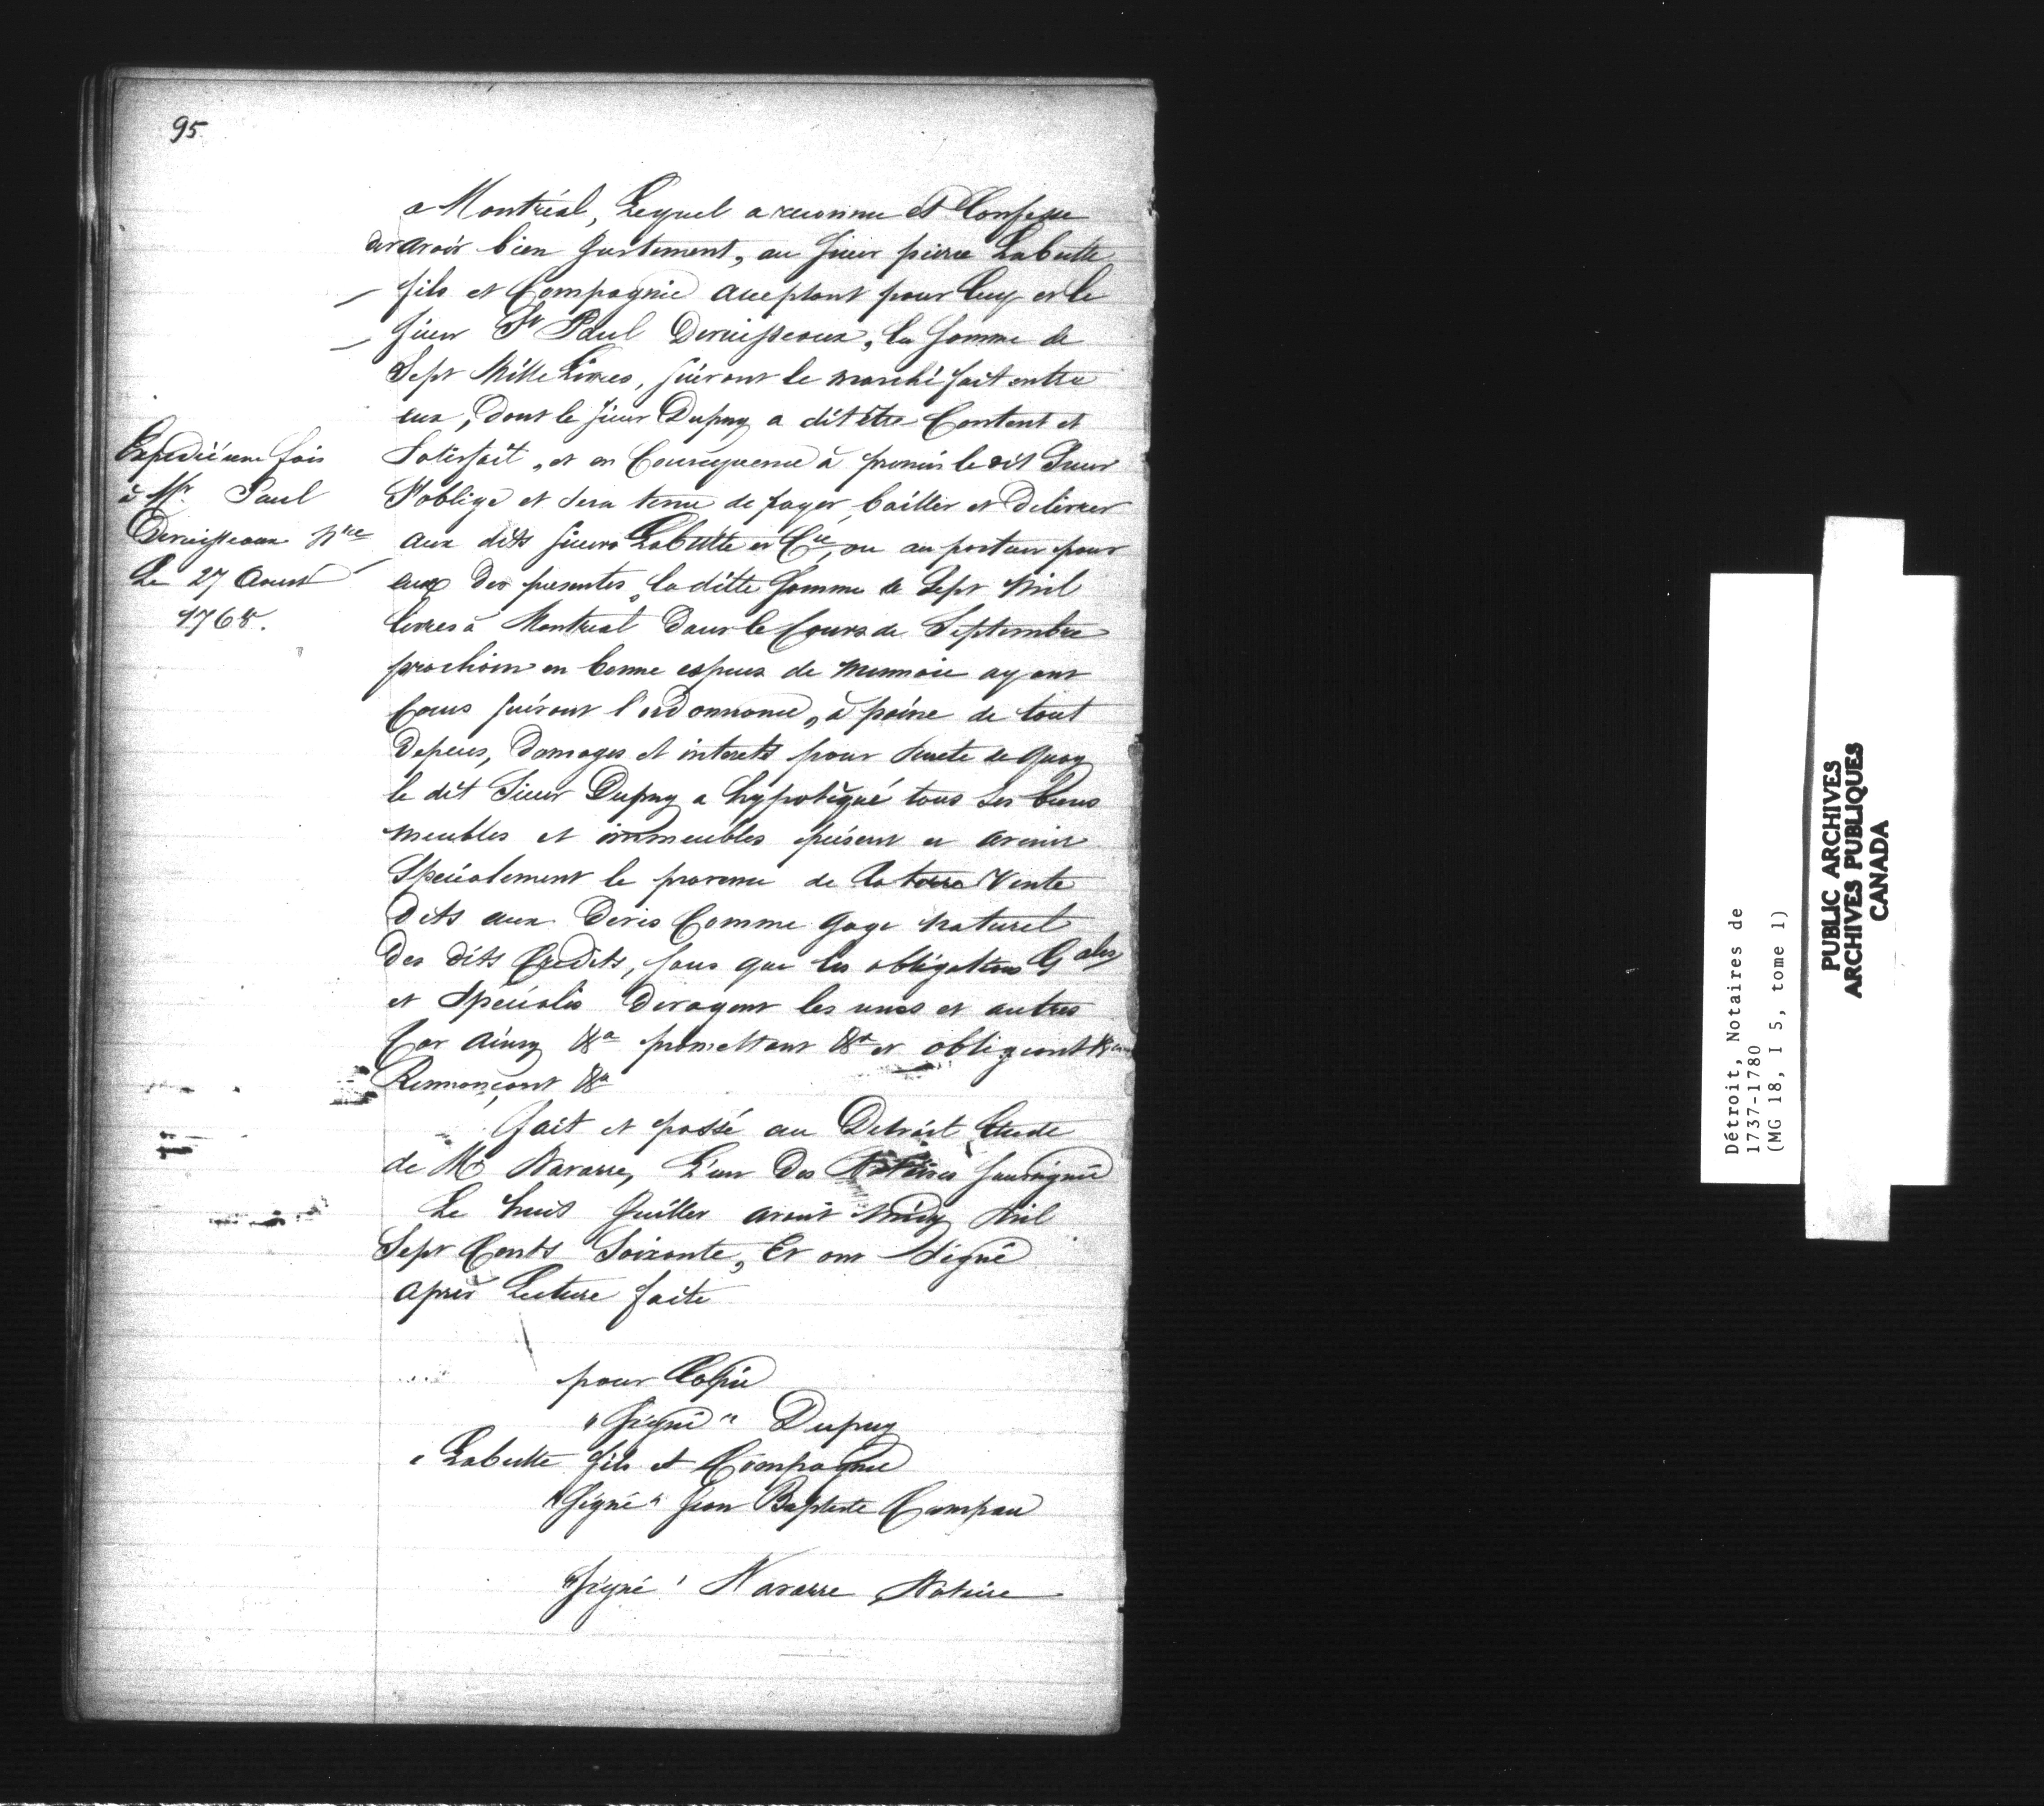 95
a Montréal, Lequel a reconnu et Confesse
devavoir bien Justement, au Sieur pierre Labutte
fils et Compagnie acceptant pour luy et le
Sieur Sr Paul Deruisseaux, la Somme de
Sept Mille Livres, suivant le marché fait entre
eux, Dont le Sieur Dupuy a dit être Content et
Satisfait, et en Consequence à promis le dit Sieur
S'oblige et Sera tenu de payer, bailler et Delivrer
aux dits Sieurs Labutte et Cie, ou au porteur pour
eux Des presentes, la ditte Somme de Sept Mil
livres à Montreal Dans le Cours de Septembre
prochain en bonne especes de Monnoie ayant
Cours suivant l'ordonnance, à peine de tout
Depens, Domages et interets pour Surete de quoy
le dit Sieur Dupuy a hypotèqué tous Ses biens
meubles et immeubles présent et avenir
Spécialement le provenu de la terre Vente
Dits aux Devis Comme gage Naturel
Des dits Credits, sans que les obligations Gales
et Spéciales Derogent les unes et autres
Car Ainsy &a promettant &a et obligeant
Rennonçant &a
fait et passé au Detroit Etude
de Me Navarre, L'un Des Notaires Soussigné
Le huit Juillet avant Midy Mil
Sept Cents Soixante, Et ont Signé
après Lecture faite
Expedié une fois
à Mr Paul
Deruisseaux
Le 27 Aoust
1768.
pour Copie
"Signé" Dupuy
" Labutte fils et Compagnie
"Signé" Jean Baptiste Campau
"Signé" Navarre Notaire
Détroit, Notaires de
1737-1780
(MG 18, I 5, tome 1)
PUBLIC ARCHIVES
ARCHIVES PUBLIQUES
CANADA